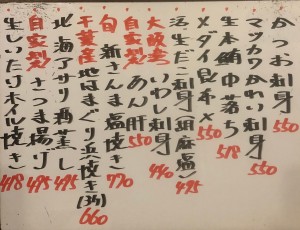 かつお刺身 550
マツカワかれい刺身 550
生本鮪中落ち 578
メダイ昆布〆 550
活生だこ刺身(胡麻塩) 495
大阪産 いわし刺身 440
自家製 あん肝 550
旬 新さんま塩焼き 770
千葉産 地はまぐり浜焼き(3ケ) 660
北海アサリ酒蒸し 495
自家製 さつま揚げ 495
生しいたけホイル焼き 418